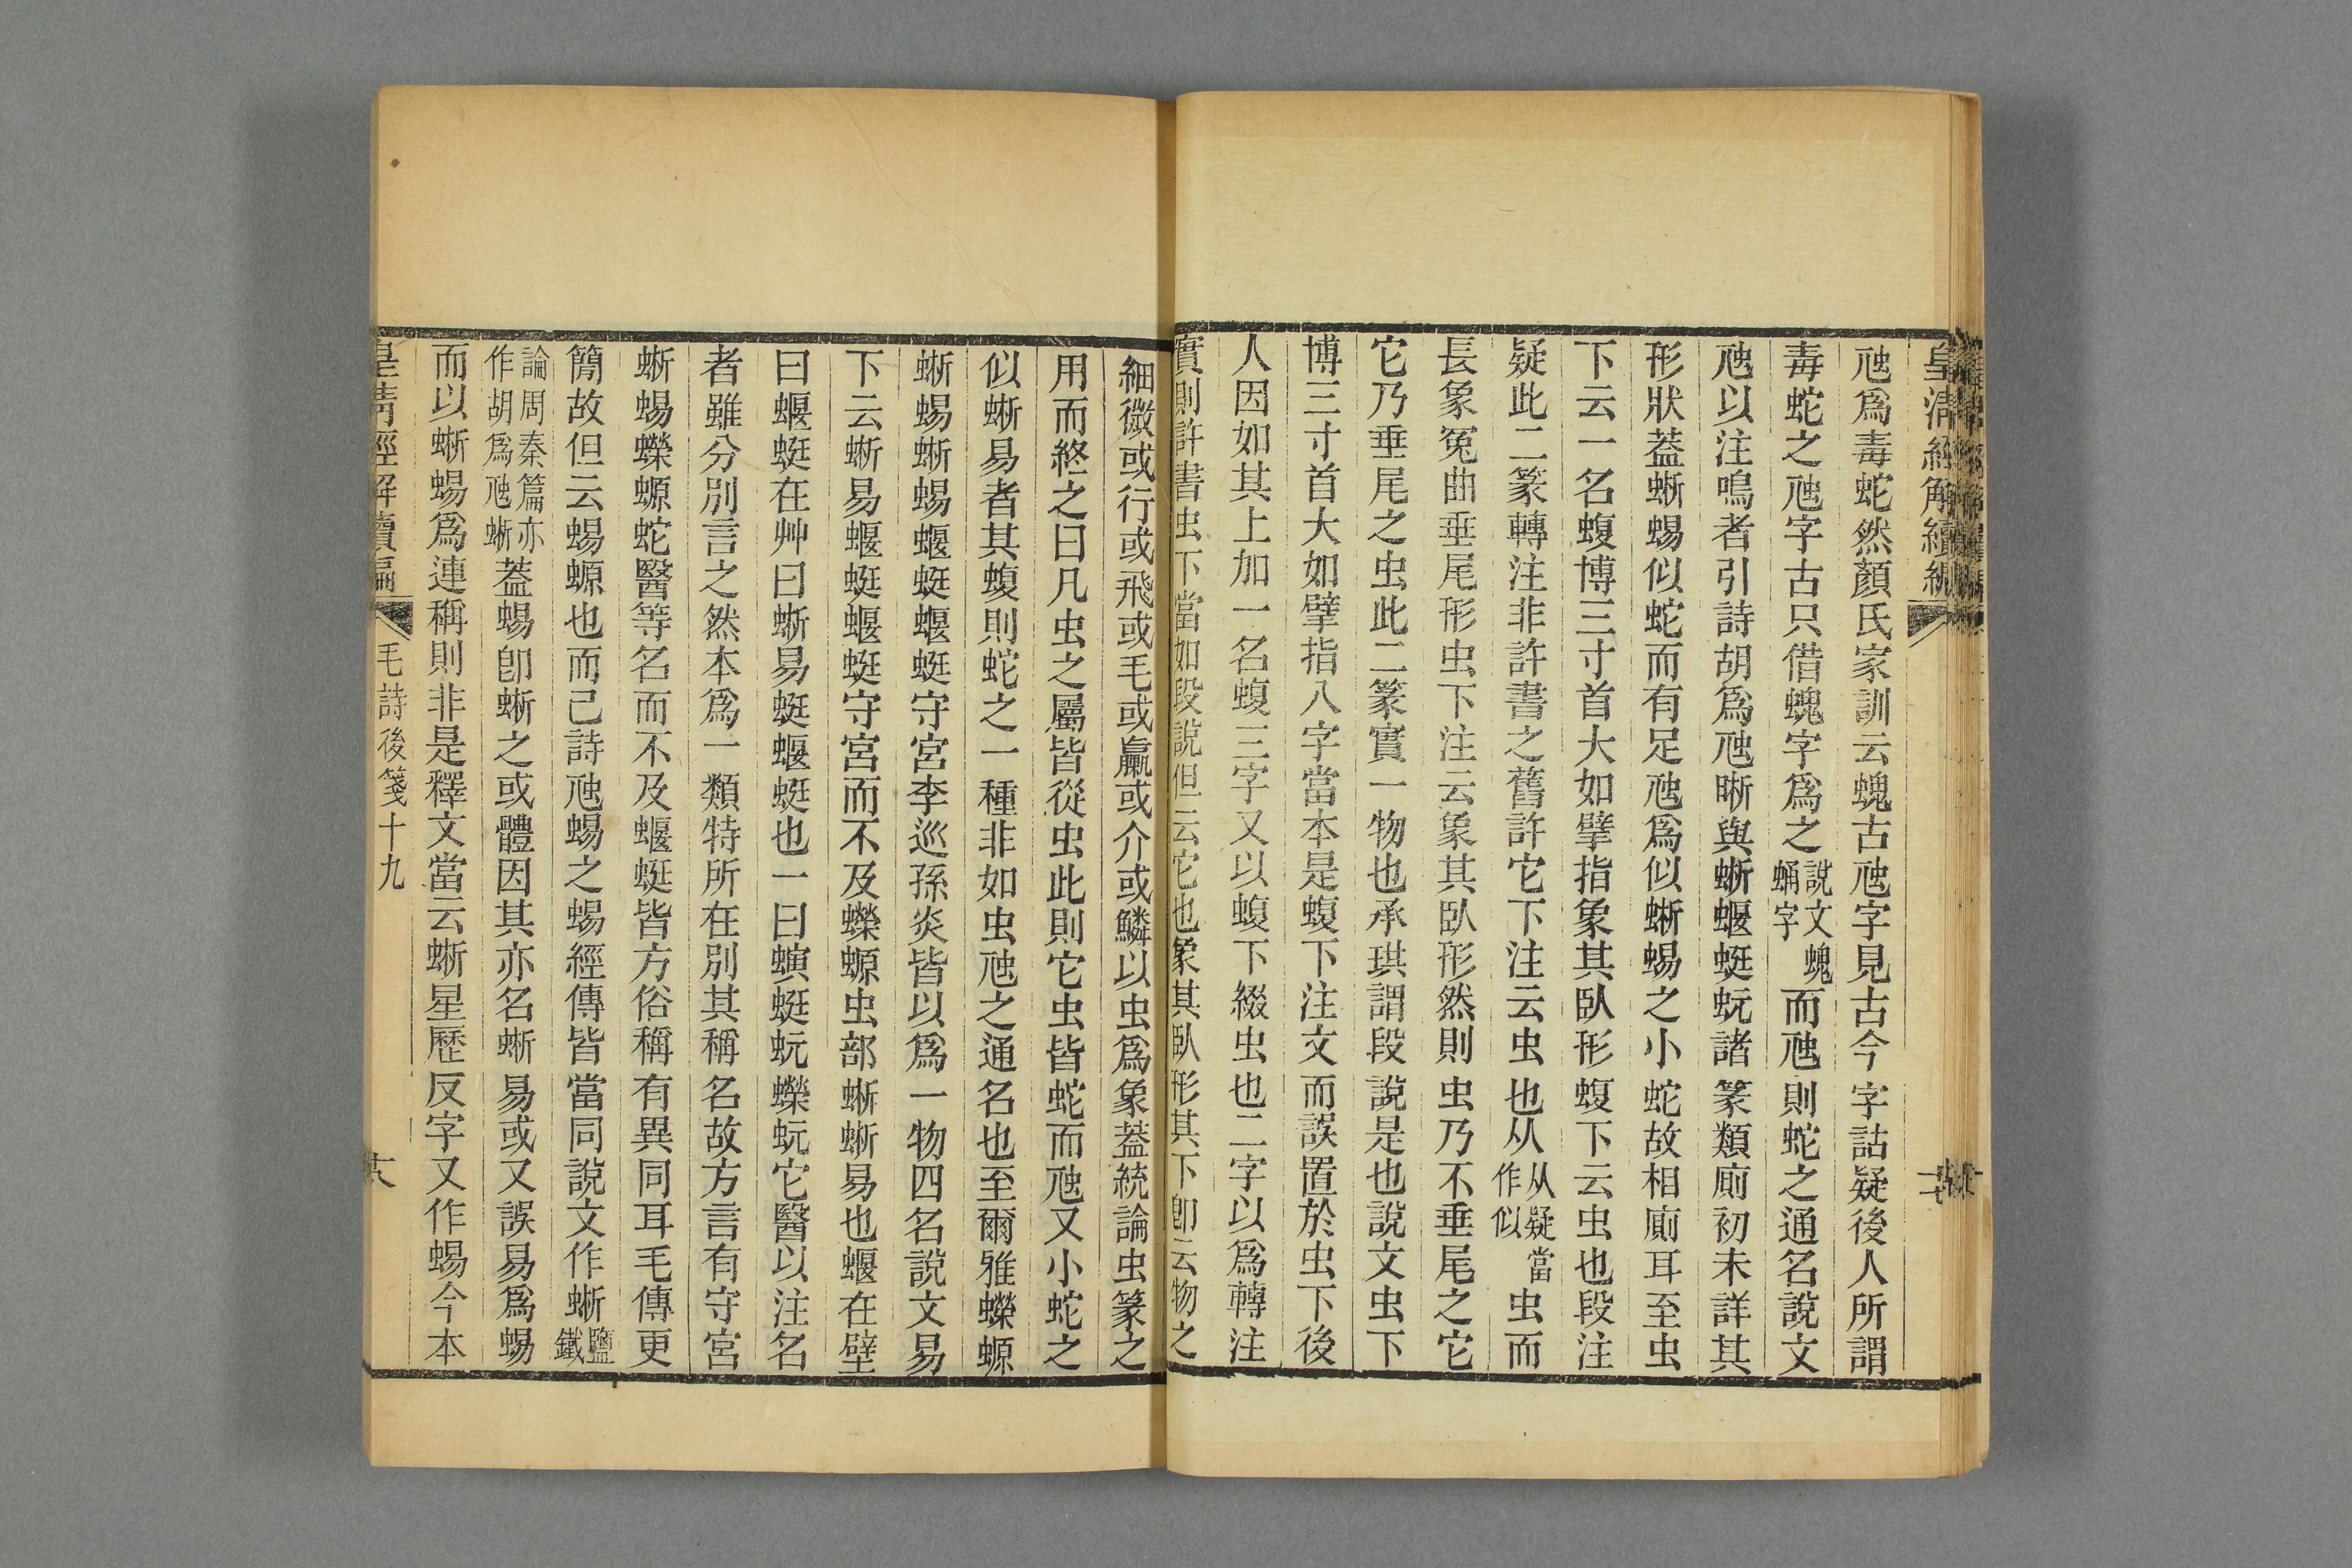 皇清經解續編
虺爲毒蛇然顏氏家訓云螝古虺字見古今字詁疑後人所謂
毒蛇之虺字古只借螝字爲之說文螝蛹字而虺則蛇之通名說文
虺以注鳴者引詩胡爲虺蜥與蜥蝘蜓蚖諸篆類廁初未詳其
形狀蓋蜥蜴似蛇而有足虺爲似蜥蜴之小蛇故相廁耳至虫
下云一名蝮博三寸首大如擘指象其臥形蝮下云虫也段注
疑此二篆轉注非許書之舊許它下注云虫也从从疑當作似虫而
長象冤曲垂尾形虫下注云象其臥形然則虫乃不垂尾之它
它乃垂尾之虫此二篆實一物也承珙謂段說是也說文虫下
博三寸首大如擘指八字當本是蝮下注文而誤置於虫下後
人因如其上加一名蝮三字又以蝮下綴虫也二字以爲轉注
實則許書虫下當如段說但云它也象其臥形其下卽云物之
細微或行或飛或毛或蠃或介或鱗以虫爲象蓋統論虫篆之
用而終之曰凡虫之屬皆從虫此則它虫皆蛇而虺又小蛇之
似蜥易者其蝮則蛇之一種非如虫虺之通名也至爾雅蠑螈
蜥蜴蜥蜴蝘蜓蝘蜓守宮李巡孫炎皆以爲一物四名說文易
下云蜥易蝘蜓蝘蜓守宮而不及蠑螈虫部蜥蜥易也蝘在壁
曰蝘蜓在艸曰蜥易蜓蝘蜓也一曰螾蜓蚖蠑蚖它醫以注名
者雖分別言之然本爲一類特所在別其稱名故方言有守宮
蜥蜴蠑螈蛇醫等名而不及蝘蜓皆方俗稱有異同耳毛傳更
簡故但云蜴螈也而已詩虺蜴之蜴經傳皆當同說文作蜥鹽鐵
論周秦篇亦作胡爲虺蜥蓋蜴卽蜥之或體因其亦名蜥易或又誤易爲蜴
而以蜥蜴爲連稱則非是釋文當云蜥星歷反字又作蜴今本
皇清經解續編
毛詩後箋十九